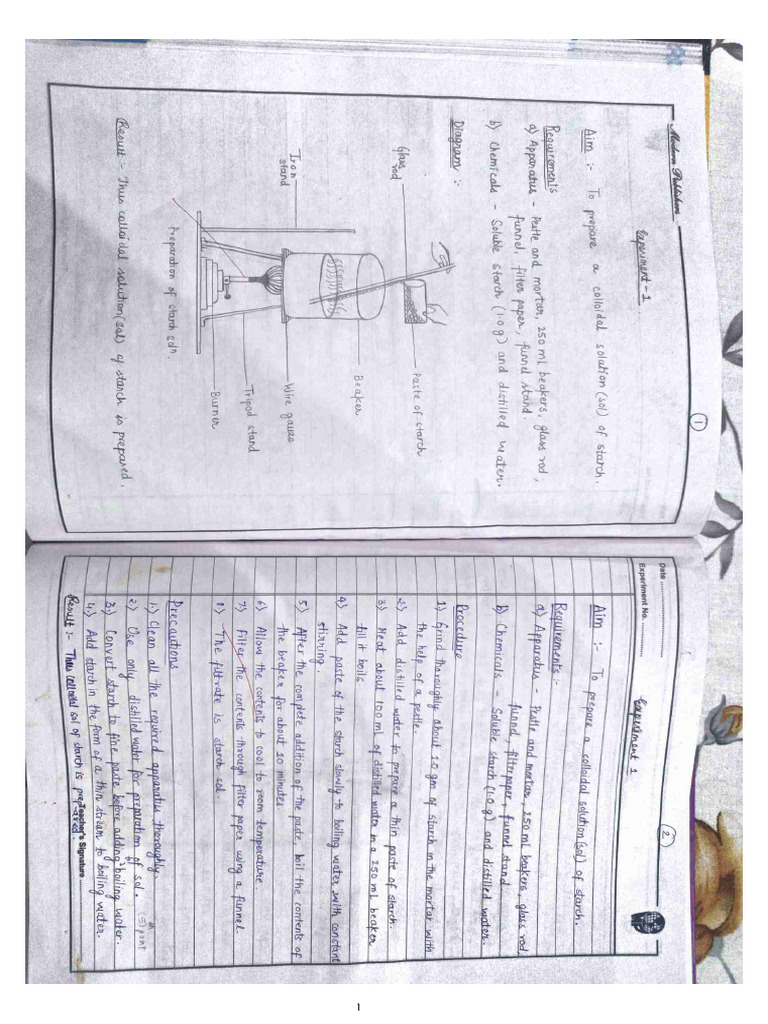 Modern Publishers
1
Experiment - 1
Aim :- To prepare a colloidal solution (sol) of starch.
Requirements
a) Apparatus - Pestle and mortar, 250 ml beakers, glass rod,
funnel, filter paper, funnel stand.
b) Chemicals - Soluble starch (1.0 g) and distilled water.
Diagram :-
Glass
rod
Paste of starch
Beaker
Iron
stand
Wire gauze
Tripod stand
Burner
Preparation of starch soln.
Result :- Thus colloidal solution(sol) of starch is prepared.
Date
Experiment No.
2
Experiment 1
Aim :- To prepare a colloidal solution (sol) of starch.
Requirements:-
a) Apparatus - Pestle and mortar, 250 ml beakers, glass rod,
funnel, filter paper, funnel stand
b) Chemicals - Soluble starch (1.0 g) and distilled water.
Procedure
1) Grind thoroughly about 10 gm of starch in the mortar with
the help of a pestle.
2) Add distilled water to prepare a thin paste of starch.
3) Heat about 100 ml of distilled water in a 250 mL beaker
till it boils
4) Add paste of the starch slowly to boiling water with constant
stirring.
5) After the complete addition of the paste, boil the contents of
the beaker for about 10 minutes
6) Allow the contents to cool to room temperature.
7) Filter the contents through filter paper using a funnel.
8) The filtrate is starch sol.
Precautions
1.) Clean all the required apparatus thoroughly.
2) Use only distilled water for preparation of sol.
3) Convert starch to fine paste before adding boiling water.
4.) Add starch in the form of a thin stream to boiling water.
Result :- Thus colloidal sol of starch is prepared.
Teacher's Signature
1